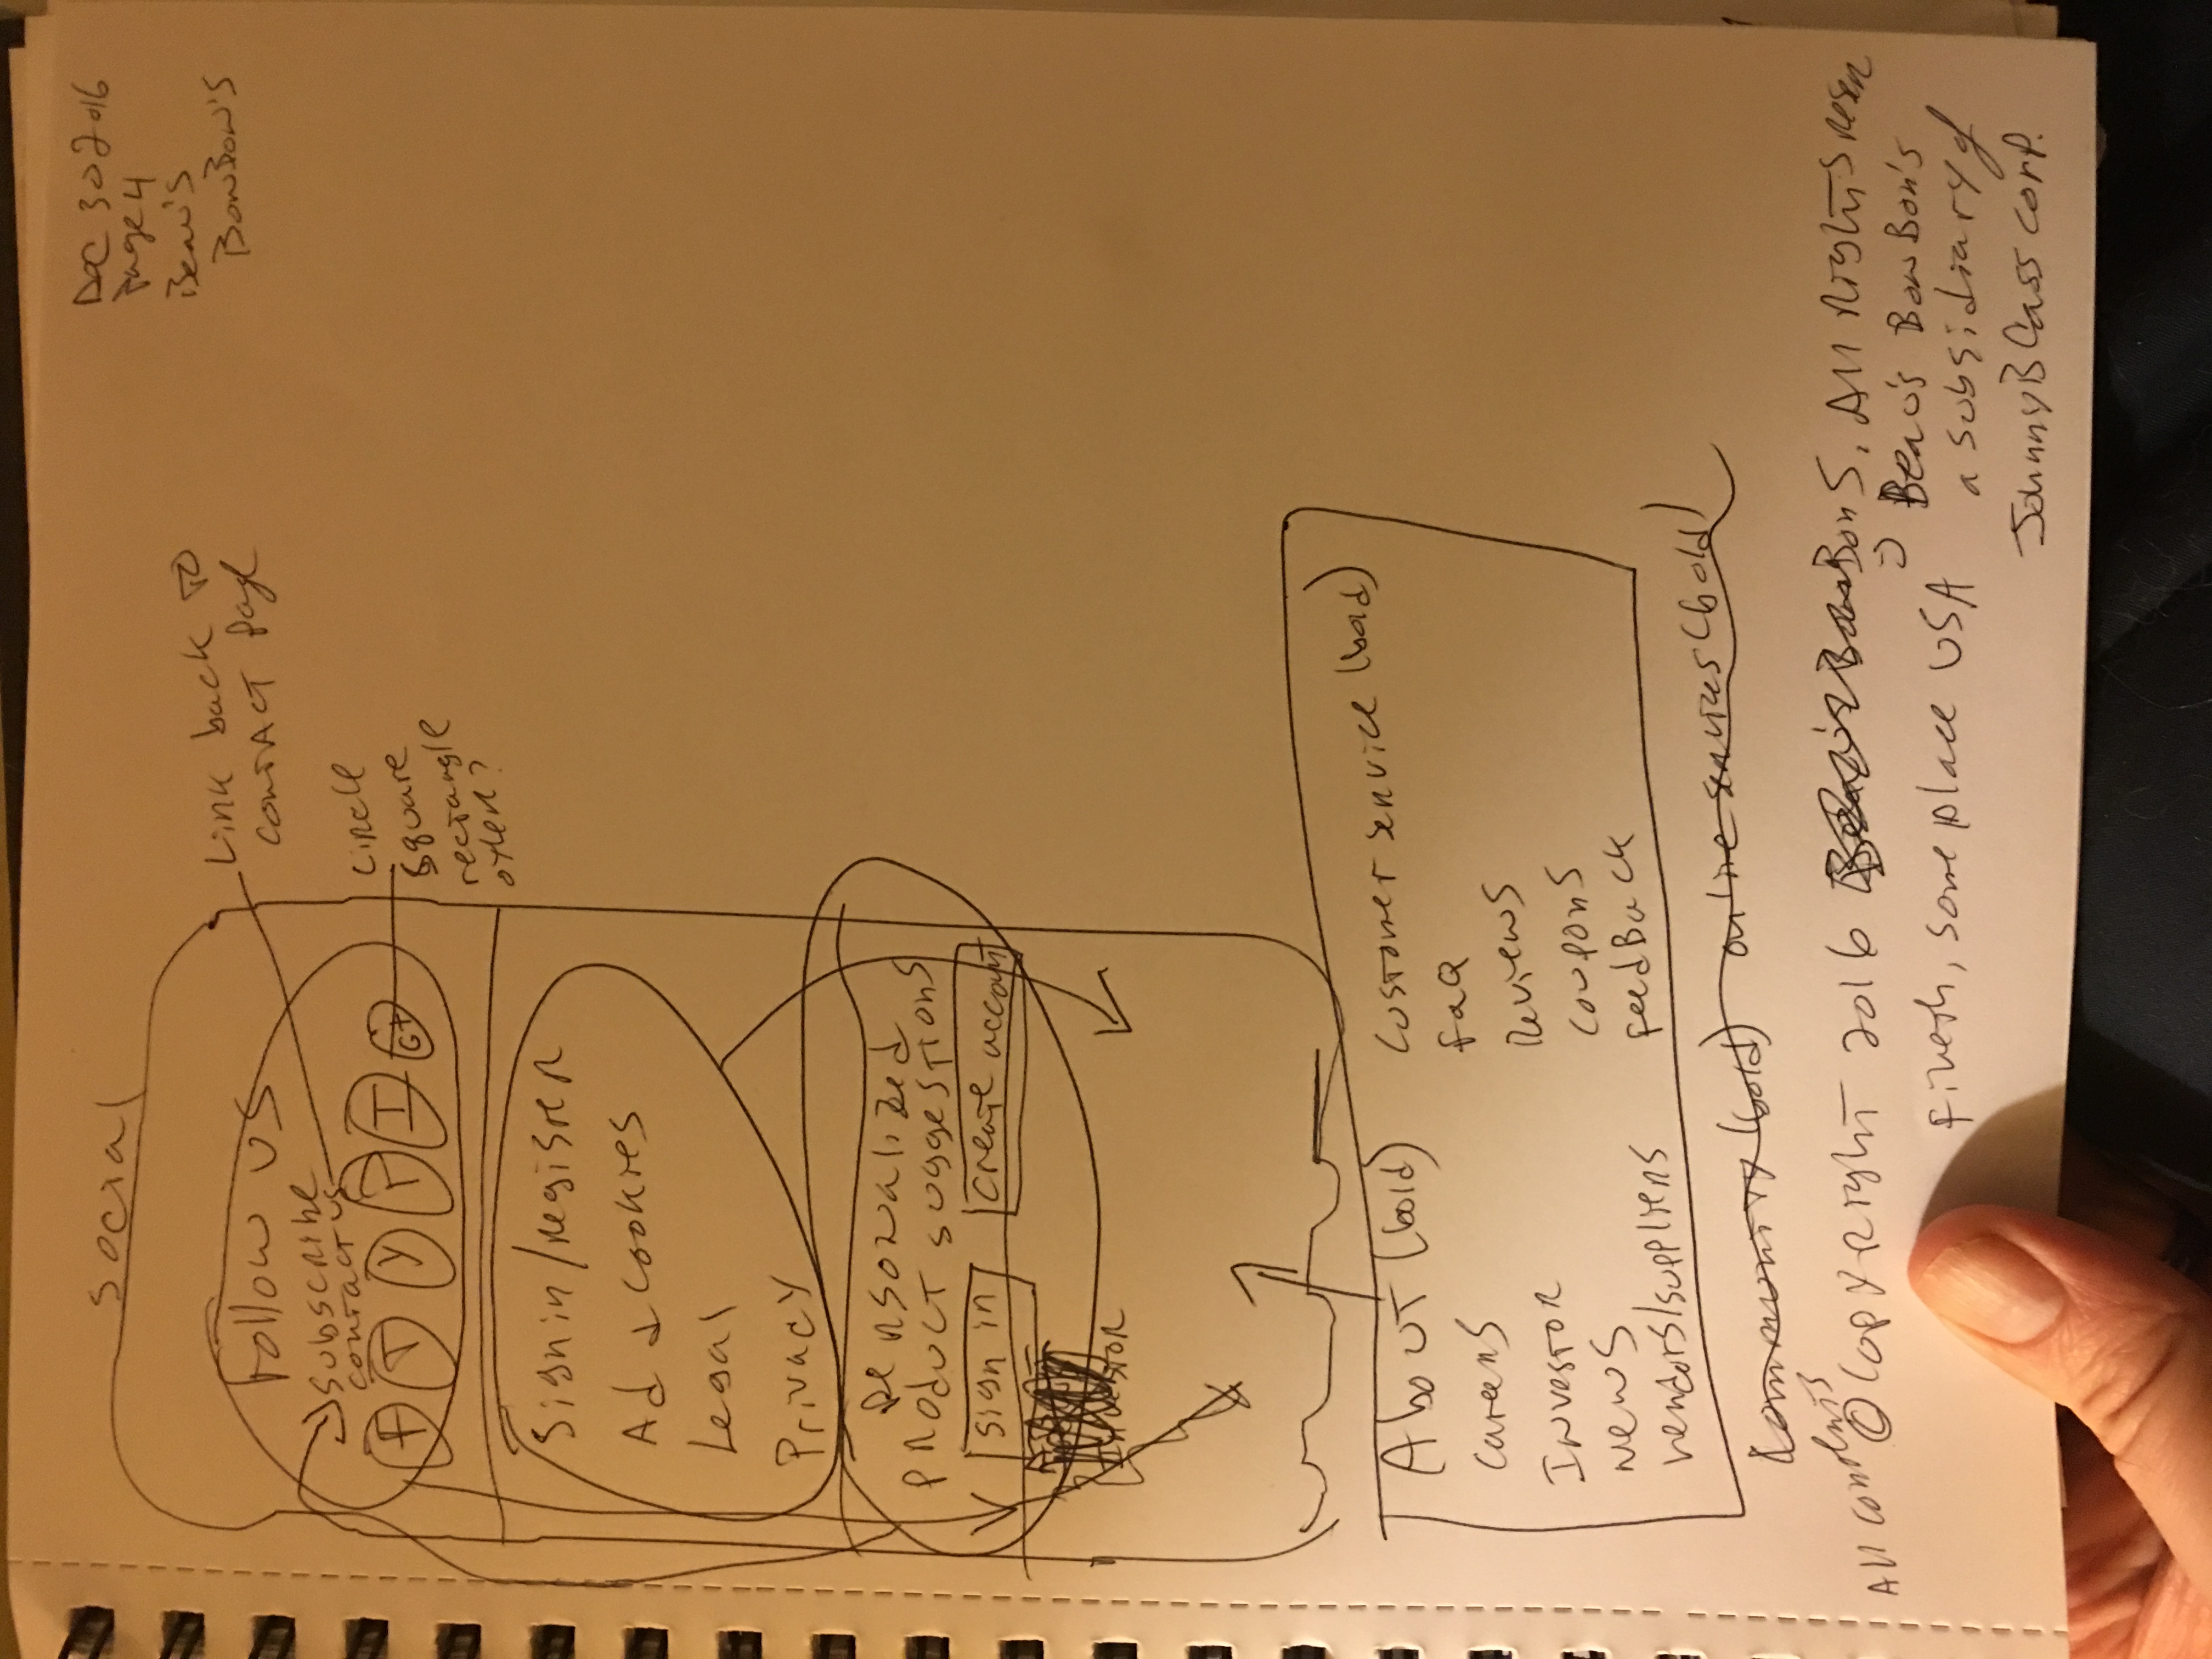 Dec 30 2016
Page 4
Beau's
BowBow's
Social
Follow us
Subscribe
contact us
F T Y P I G+
Link back to
contact page
circle
square
rectangle
other?
Sign in/register
Ad & cookies
Legal
Privacy
Personalized
product suggestions
sign in
create account
Investor
About (bold)
Careers
Investor
News
vendors/suppliers
Customer service (bold)
FAQ
Reviews
Coupons
FeedBack
Community (bold) online services (bold)
All
© Copyright 2016 Beau's BowBonS, All Rights
, some place USA
Beau's BowBon's
a subsidiary of
JohnnyBCass corp.